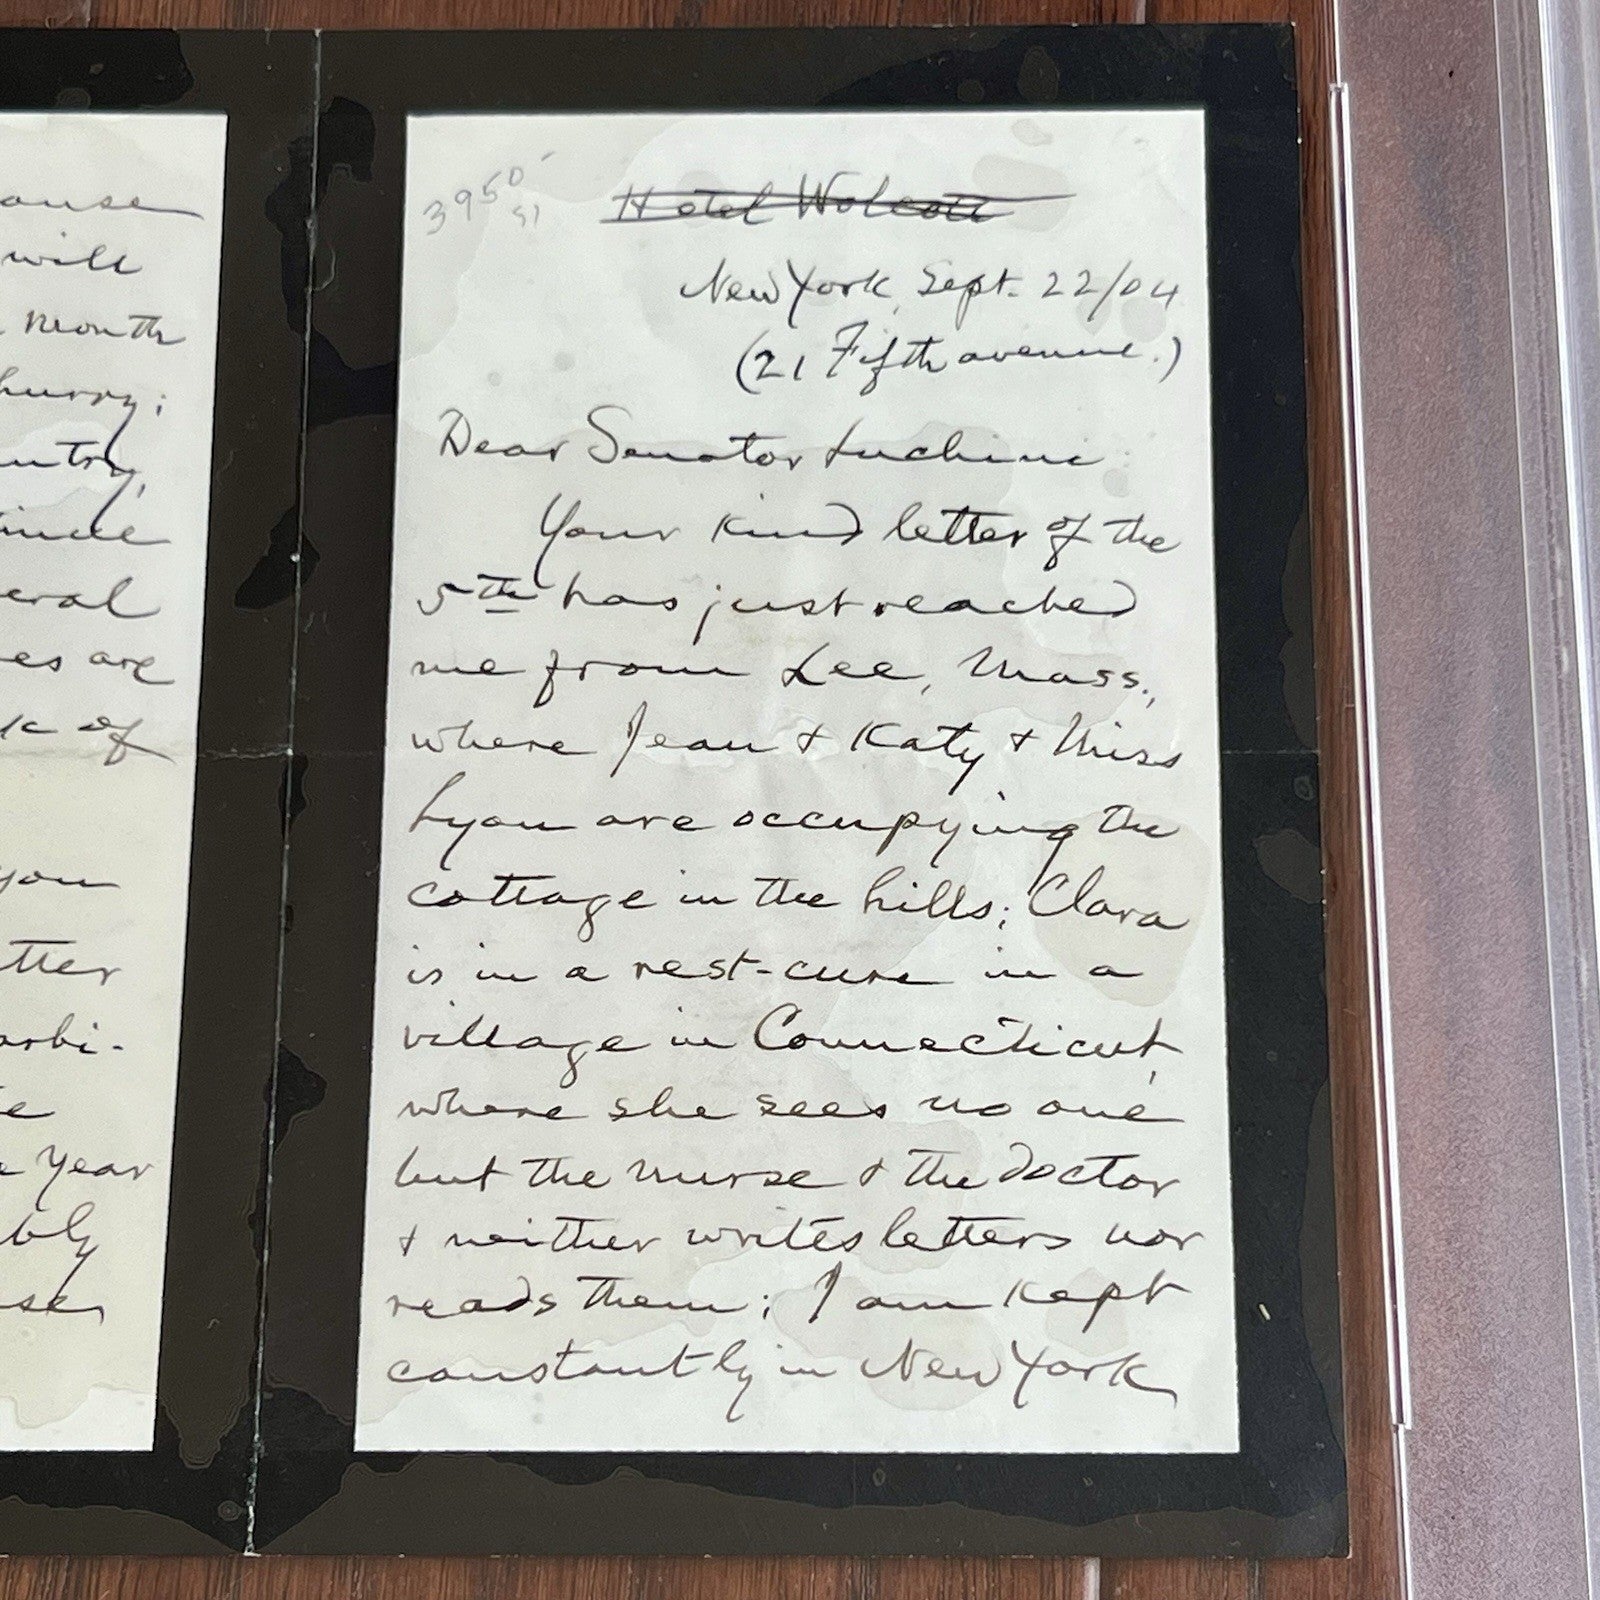 ause
will
month
hurry;
untry,
tinue
eral
es are
k of
you
tter
arbi-
e
Year
ably
3950
Hotel Wolcott
New York, Sept. 22/04
(21 Fifth avenue.)
Dear Senator Luchini:
Your kind letter of the
5th has just reached
me from Lee, Mass.,
where Jean + Katy + Miss
Lyon are occupying the
cottage in the hills; Clara
is in a rest-cure in a
village in Connecticut,
where she sees no one
but the nurse + the doctor
+ neither writes letters nor
reads them; I am kept
constantly in New York